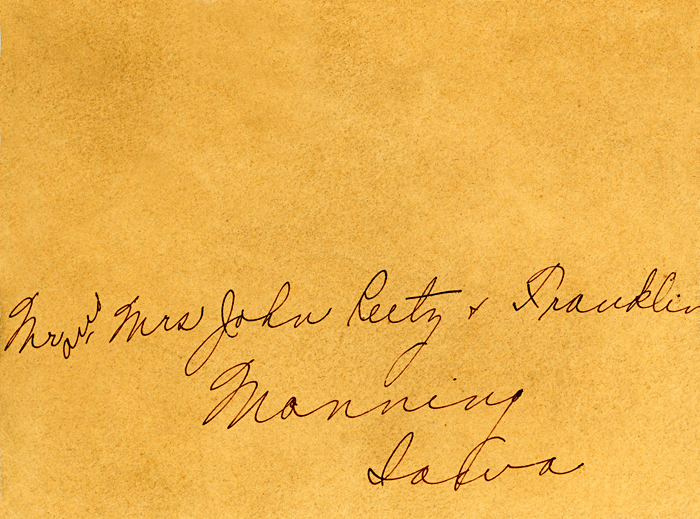 Mr and Mrs John Reetz & Franklin
Manning
Iowa